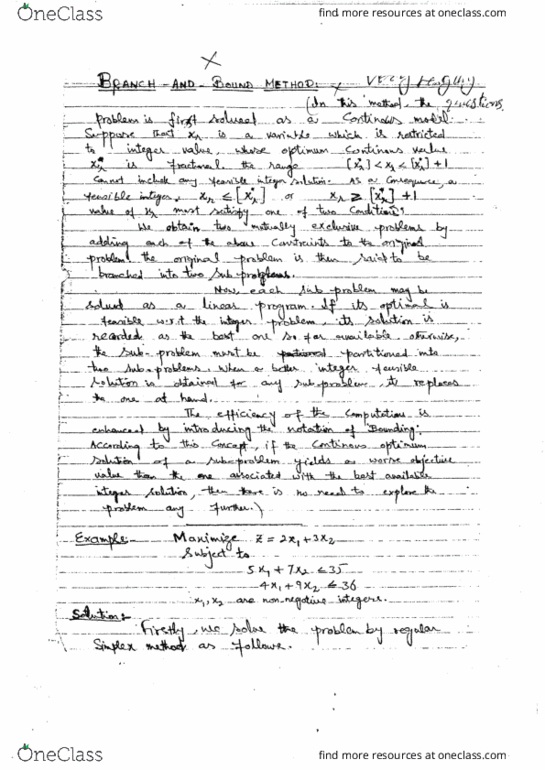 OneClass
find more resources at oneclass.com
BRANCH - AND - BOUND METHOD:
(In this method, the
problem is first solved as a Continous model.
Suppose that xr is a variable which is restricted
to integer value, whose optimum Continous value
x*r is fractional. the range [x*r] < xr < [x*r] + 1
Cannot include any feasible integer solution. As a Consequence, a
feasible integer, xr ≤ [x*r] or xr ≥ [x*r] + 1
value of xr must satisfy one of two Conditions:
We obtain two mutually exclusive problems by
adding each of the above Constraints to the original
problem. the original problem is then said to be
branched into two sub-problems.
Now, each sub problem may be
solved as a linear program. If its optimal is
feasible w.r.t the integer problem, its solution is
recorded as the best one so far available. otherwise,
the sub-problem must be partitioned into
two sub-problems. When a better integer feasible
solution is obtained for any sub-problem, it replaces
the one at hand.
The efficiency of the Computations is
enhanced by introducing the notation of Bounding.
According to this Concept, if the Continous optimum
solution of a sub-problem yields a worse objective
value than the one associated with the best available
integer solution, then there is no need to explore the
problem any further.)
Example: Maximize Z = 2x1 + 3x2
Subject to
5x1 + 7x2 ≤ 35
4x1 + 9x2 ≤ 36
x1, x2 are non-negative integers.
Solution:
Firstly, we solve the problem by regular
Simplex method as follows.
OneClass
find more resources at oneclass.com